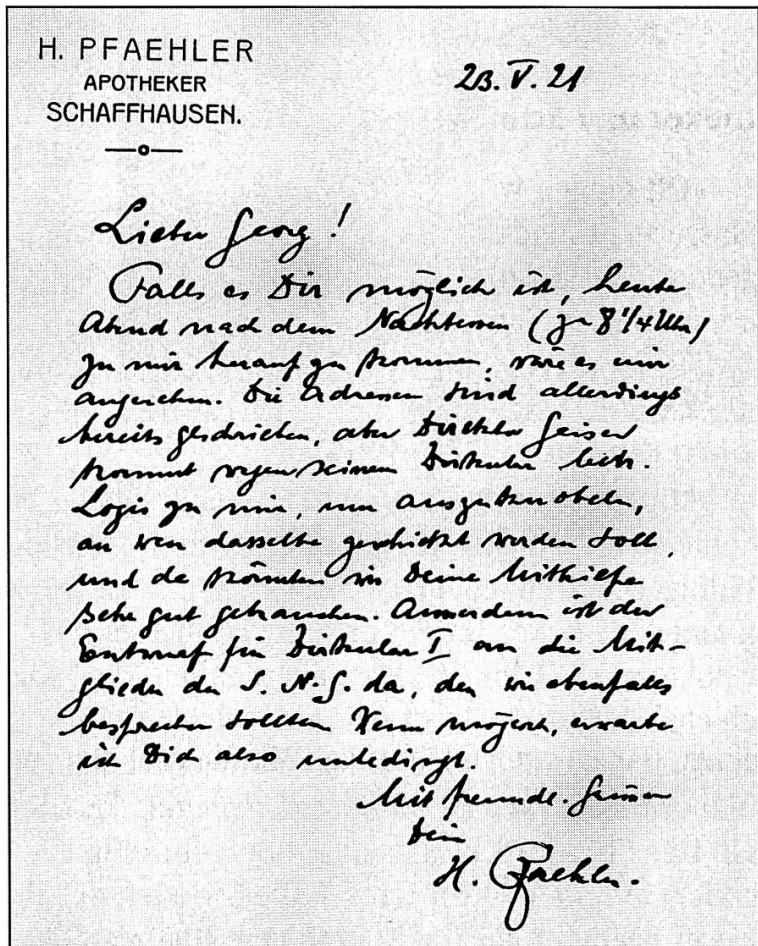 H. PFAEHLER
APOTHEKER
SCHAFFHAUSEN.
23. V. 21
Lieber Georg!
Falls es Dir möglich ist, heute
Abend nach dem Nachtessen (zu 8 1/4 Uhr)
zu mir herauf zu kommen, wäre es mir
angenehm. Die Adressen sind allerdings
bereits geschrieben, aber Direktor Geiser
kommt wegen seinem Zirkular betr.
Logis zu mir, um auszuknobeln,
an wen dasselbe geschickt werden soll,
und da könnten wir Deine Mithilfe
sehr gut gebrauchen. Ausserdem ist der
Entwurf für Zirkular I an die Mit-
glieder der S. N. G. da, den wir ebenfalls
besprechen sollten. Wenn möglich, erwarte
ich Dich also unbedingt.
Mit freundl. Grüssen
Dein
H. Pfaehler.